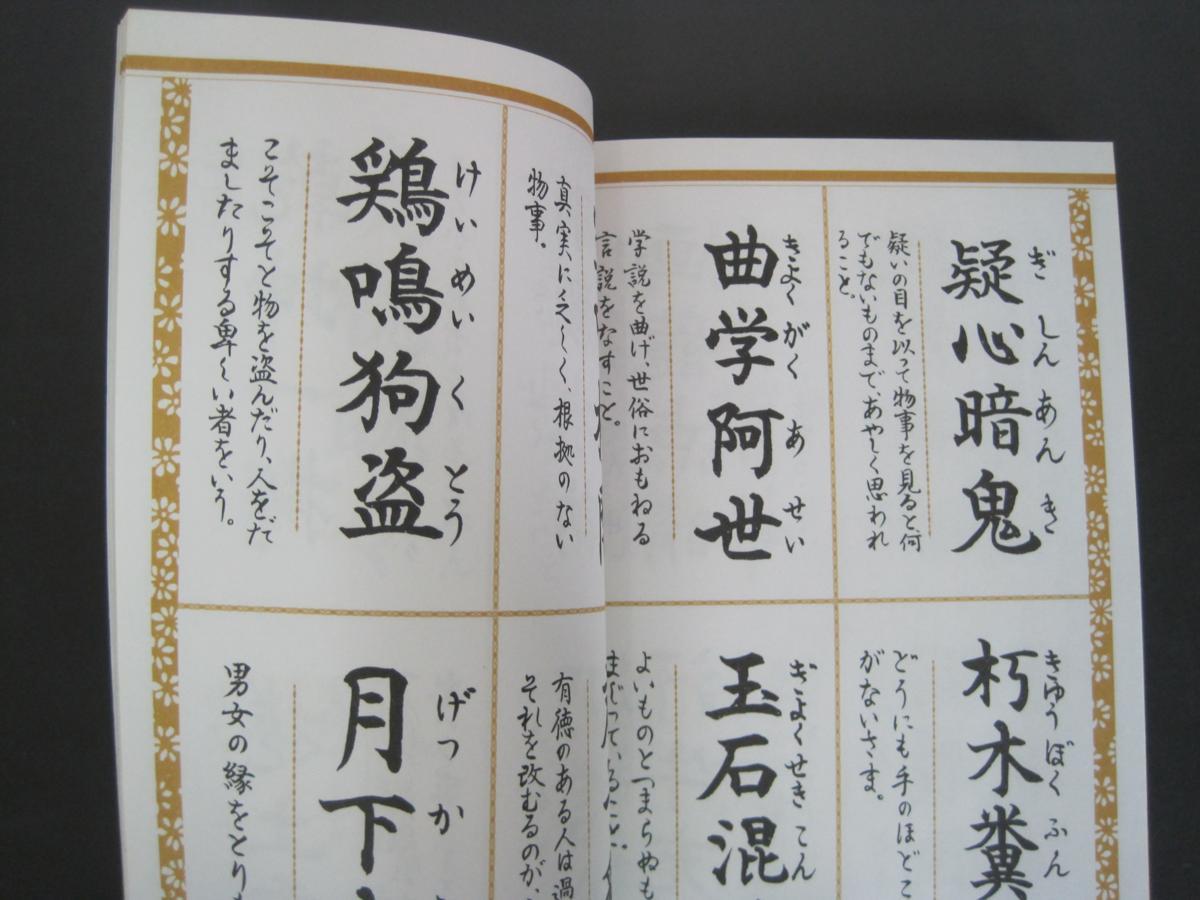 疑心暗鬼
ぎしんあんき
疑いの目を以って物事を見ると何
でもないものまで、あやしく思われ
ること。
曲学阿世
きよくがくあせい
学説を曲げ、世俗におもねる
言説をなすこと。
朽木糞
きゆうぼくふん
どうにも手のほどこ
がないさま。
玉石混
ぎよくせきこん
よいものとつまらぬも
まじっていること。
真実に乏しく、根拠のない
物事。
鶏鳴狗盗
けいめいくとう
こそこそと物を盗んだり、人をだ
ましたりする卑しい者をいう。
有徳のある人は過
それを改むるのが、
月下
げつか
男女の縁をとりも